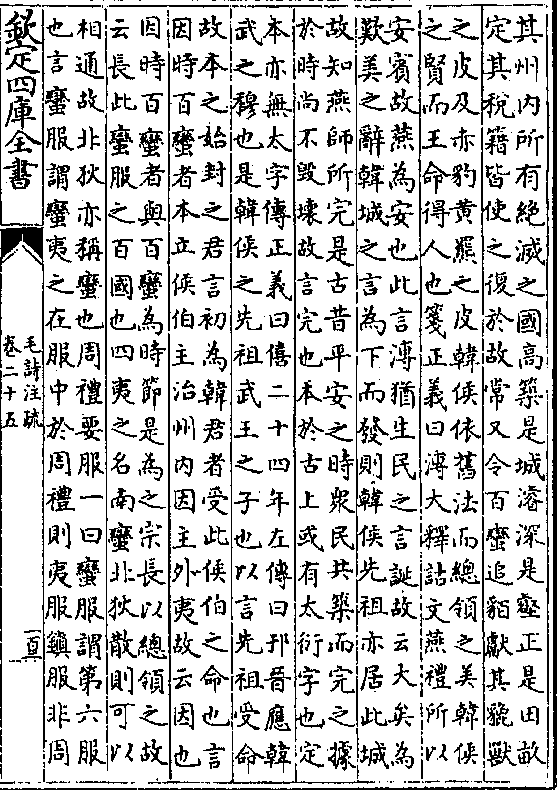 其州内所有絶滅之國高築是城濬深是壑正是田畝
定其稅籍皆使之復於故常又令百蠻追貊獻其貔獸
之皮及赤豹黄羆之皮韓侯依舊法而總領之美韓侯
之賢而王命得人也箋正義曰溥大釋詁文燕禮所以
安賓故燕為安也此言溥猶生民之言誕故云大矣為
歎美之辭韓城之言為下而發則韓侯先祖亦居此城
故知燕師所完是古昔平安之時衆民共築而完之據
於時尚不毁壊故言完也本於古上或有太衍字也定
本亦無太字傳正義曰僖二十四年左傳曰邘晉應韓
武之穆也是韓侯之先祖武王之子也以言先祖受命
故本之始封之君言初為韓君者受此侯伯之命也言
因時百蠻者本立侯伯主治州内因主外夷故云因也
因時百蠻者與百蠻為時節是為之宗長以總領之故
云長此蠻服之百國也四夷之名南蠻北狄散則可以
相通故北狄亦稱蠻也周禮要服一曰蠻服謂第六服
也言蠻服謂蠻夷之在服中於周禮則夷服鎮服非周
欽定四庫全書
毛詩注疏
卷二十五